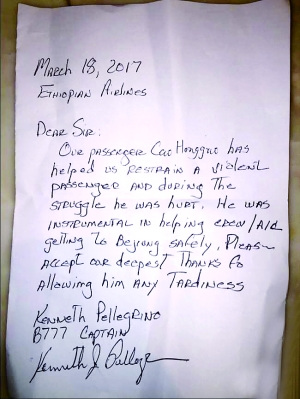 March 18, 2017
Ethiopian Airlines
Dear Sir:
Our passenger Cao Hongguo has
helped us restrain a violent
passenger and during the
struggle he was hurt. He was
instrumental in helping crew/aid
getting to Bejing safely. Pleas
accept our deepest thanks fo
allowing him any tardiness
Kenneth Pellegrino
B777 Captain
Kenneth J Pelleg